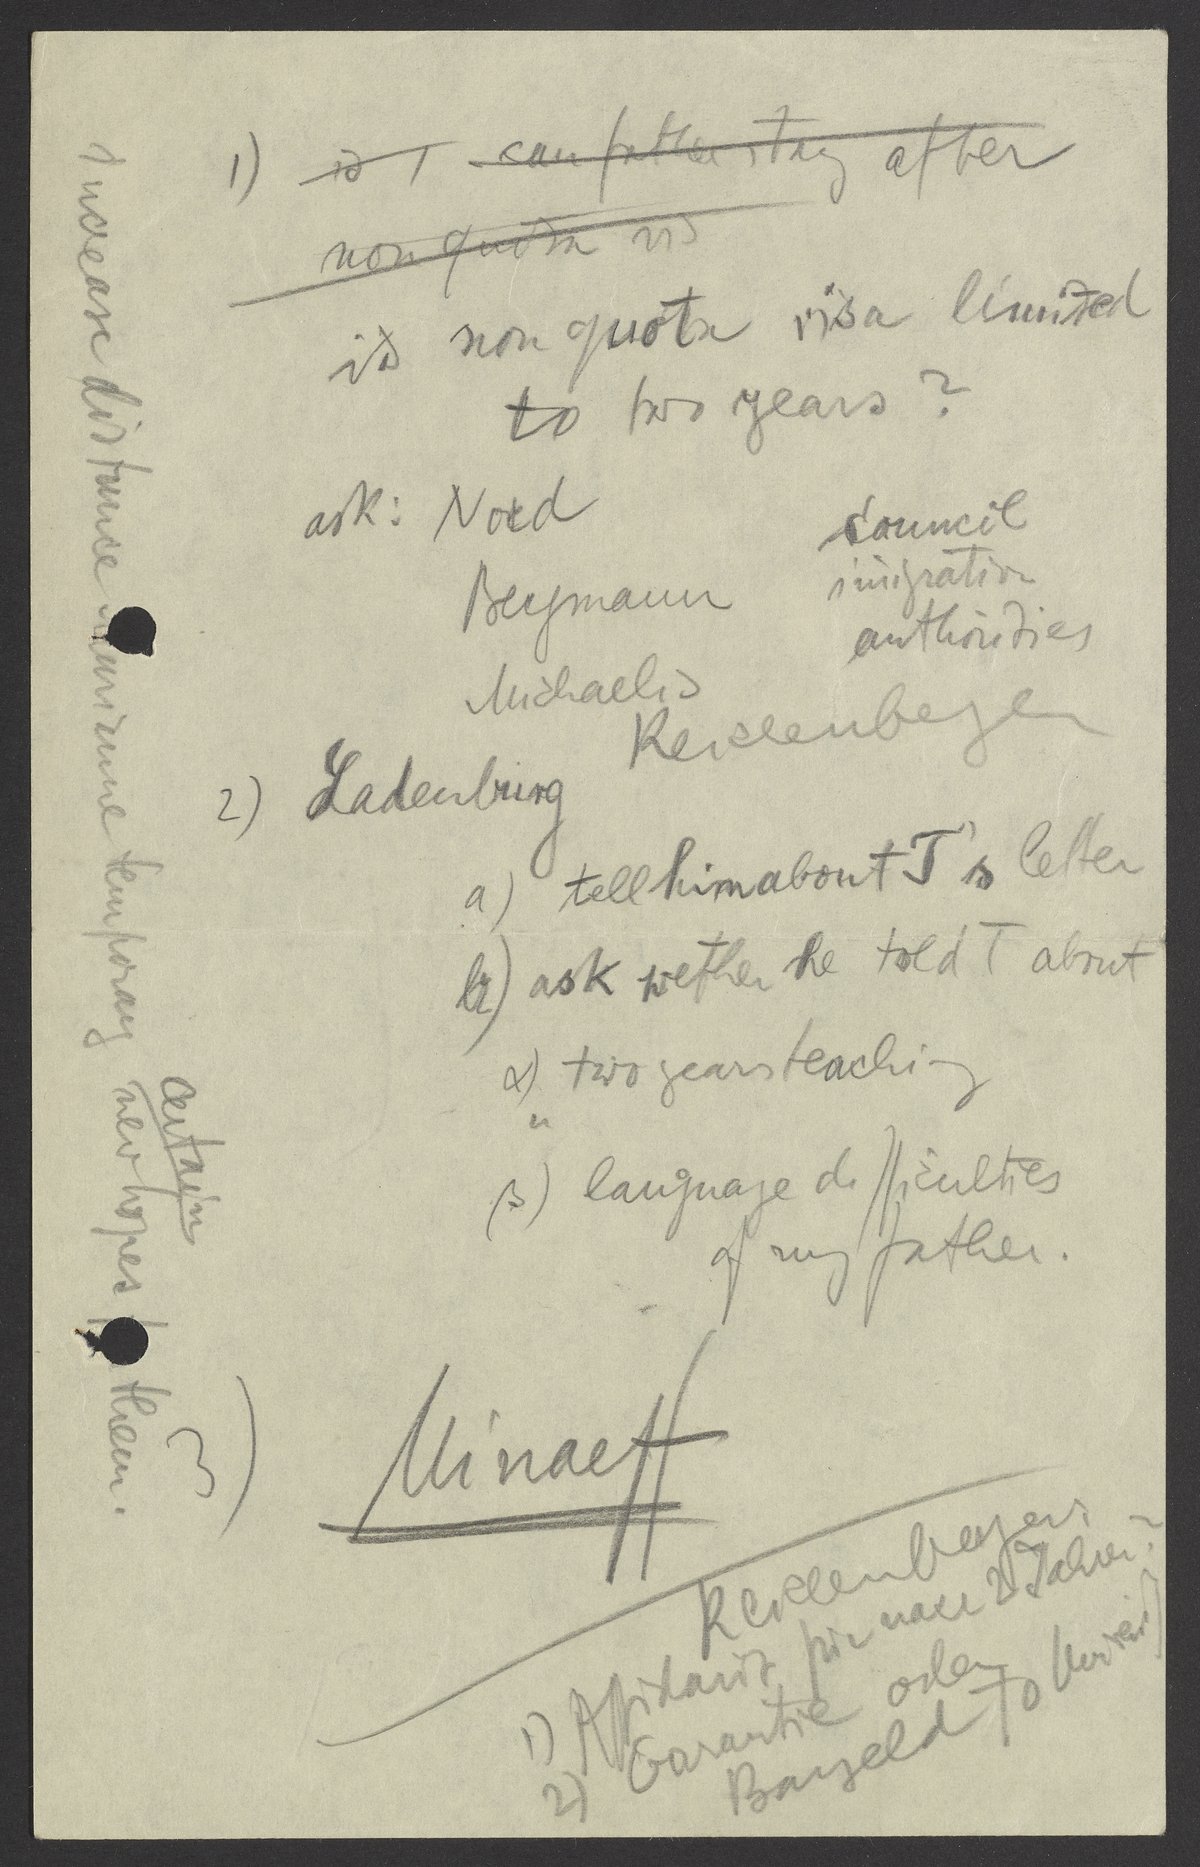 1) is T can father stay after
non quota vis
is non quota visa limited
to two years?
ask: Nord
Bergmann
Michaelis
council
imigration
authorities
Reichenberger
2) Ladenburg
a) tell him about T's letter
b) ask wether he told T about
α) two years teaching
"
β) language difficulties
of my father.
3) Minaeff
Reichenberger:
1) Affidavit für nach 2 Jahren?
2) Garantie oder
Bargeld To
increase distance temporary
certain
new hopes them.